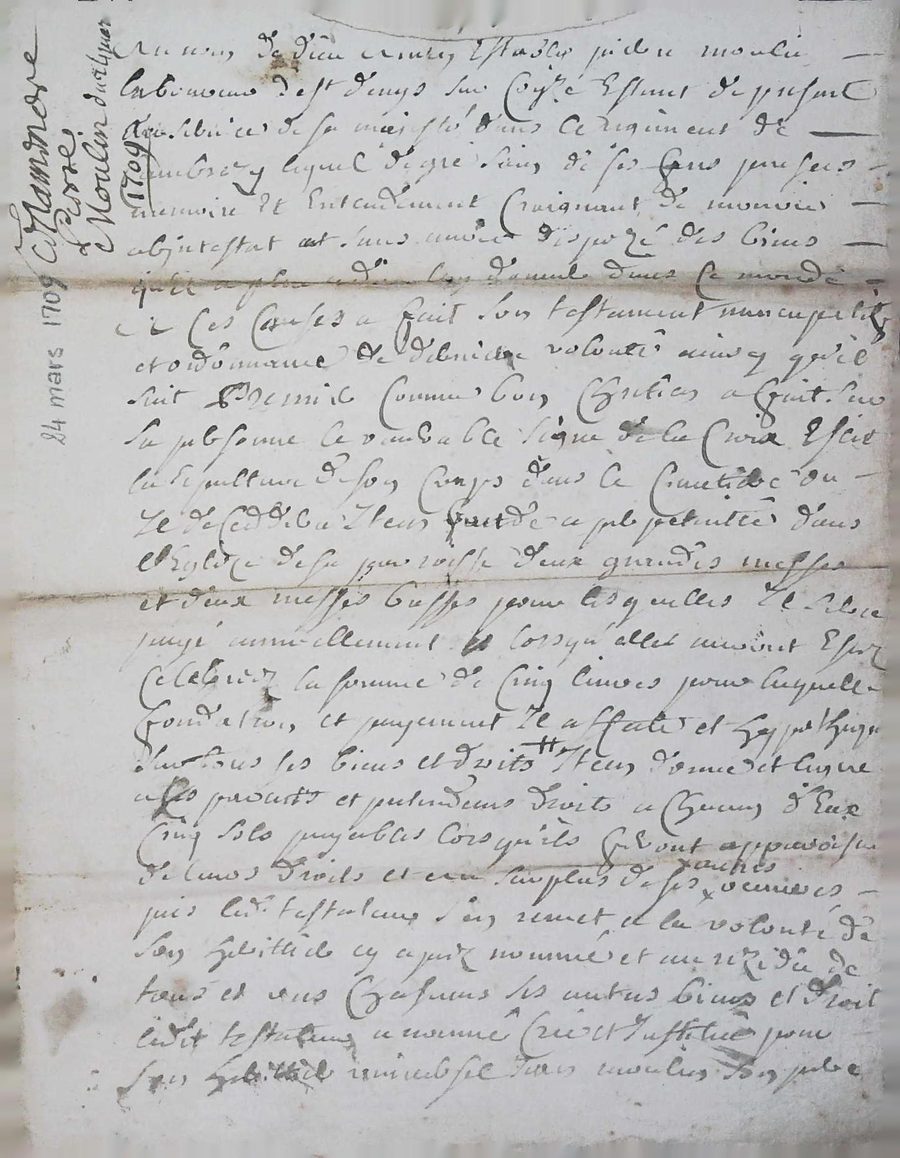 Au nom de dieu amen Estably pierre moulin
laboureur de st denys sur Coize Estant de present
au service de sa majesté dans le regiment de
lequel de gré sain de ses sens parfaits
memoire Et Entendement Craignant de mourir
abintestat et sans avoir disposé des biens
qu'il a pleu a dieu luy donner dans Ce monde
a Ces Causes a fait son testament nuncupatif
et ordonnance de derniere volonté ainsy qu'il
suit Premier Comme bon Chretien a fait sur
sa personne le venerable signe de la Croix Eslit
la sepulture de son Corps dans le Cimetiere ou
Il deceddera Item fonde a perpetuitté dans
l'Eglize de sa parroisse deux grandes messes
et deux messes basses pour lesquelles Il sera
payé annuellement lorsqu'elles auront Esté
Celebrez la somme de Cinq livres pour laquelle
fondation et payement Il affecte et hypotheque
tous ses biens et droits Item donne et legue
a ses parants et pretendans droits a Chacun d'Eux
Cinq sols payables lorsqu'ils feront apparoistre
de leurs droits et au surplus de ses autres oeuvres
pies led. testateur s'en remet a la volonté de
son heritier cy apres nommé et au rezidu de
tous et uns Chascuns ses autres biens et droits
ledit testateur a nommé Créé et Institué pour
son heritier universel Jean moulin son pere
24 mars 1709
Pierre
Moulin
1709